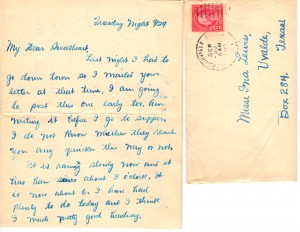 Tuesday Night 9/29
My Dear Sweetheart,
Last night I had to
go down town so I mailed your
letter at that time. I am going
to post this one early too, am
writing it before I go to supper.
I do not know whether they reach
you any quicker this way or not.
It is raining slowly now and
has been since about 1 o'clock. It
is now about 6. I have had
plenty to do today and I think
I made pretty good headway.
Miss Ina Lewis,
Uvalde,
Box 284. Texas